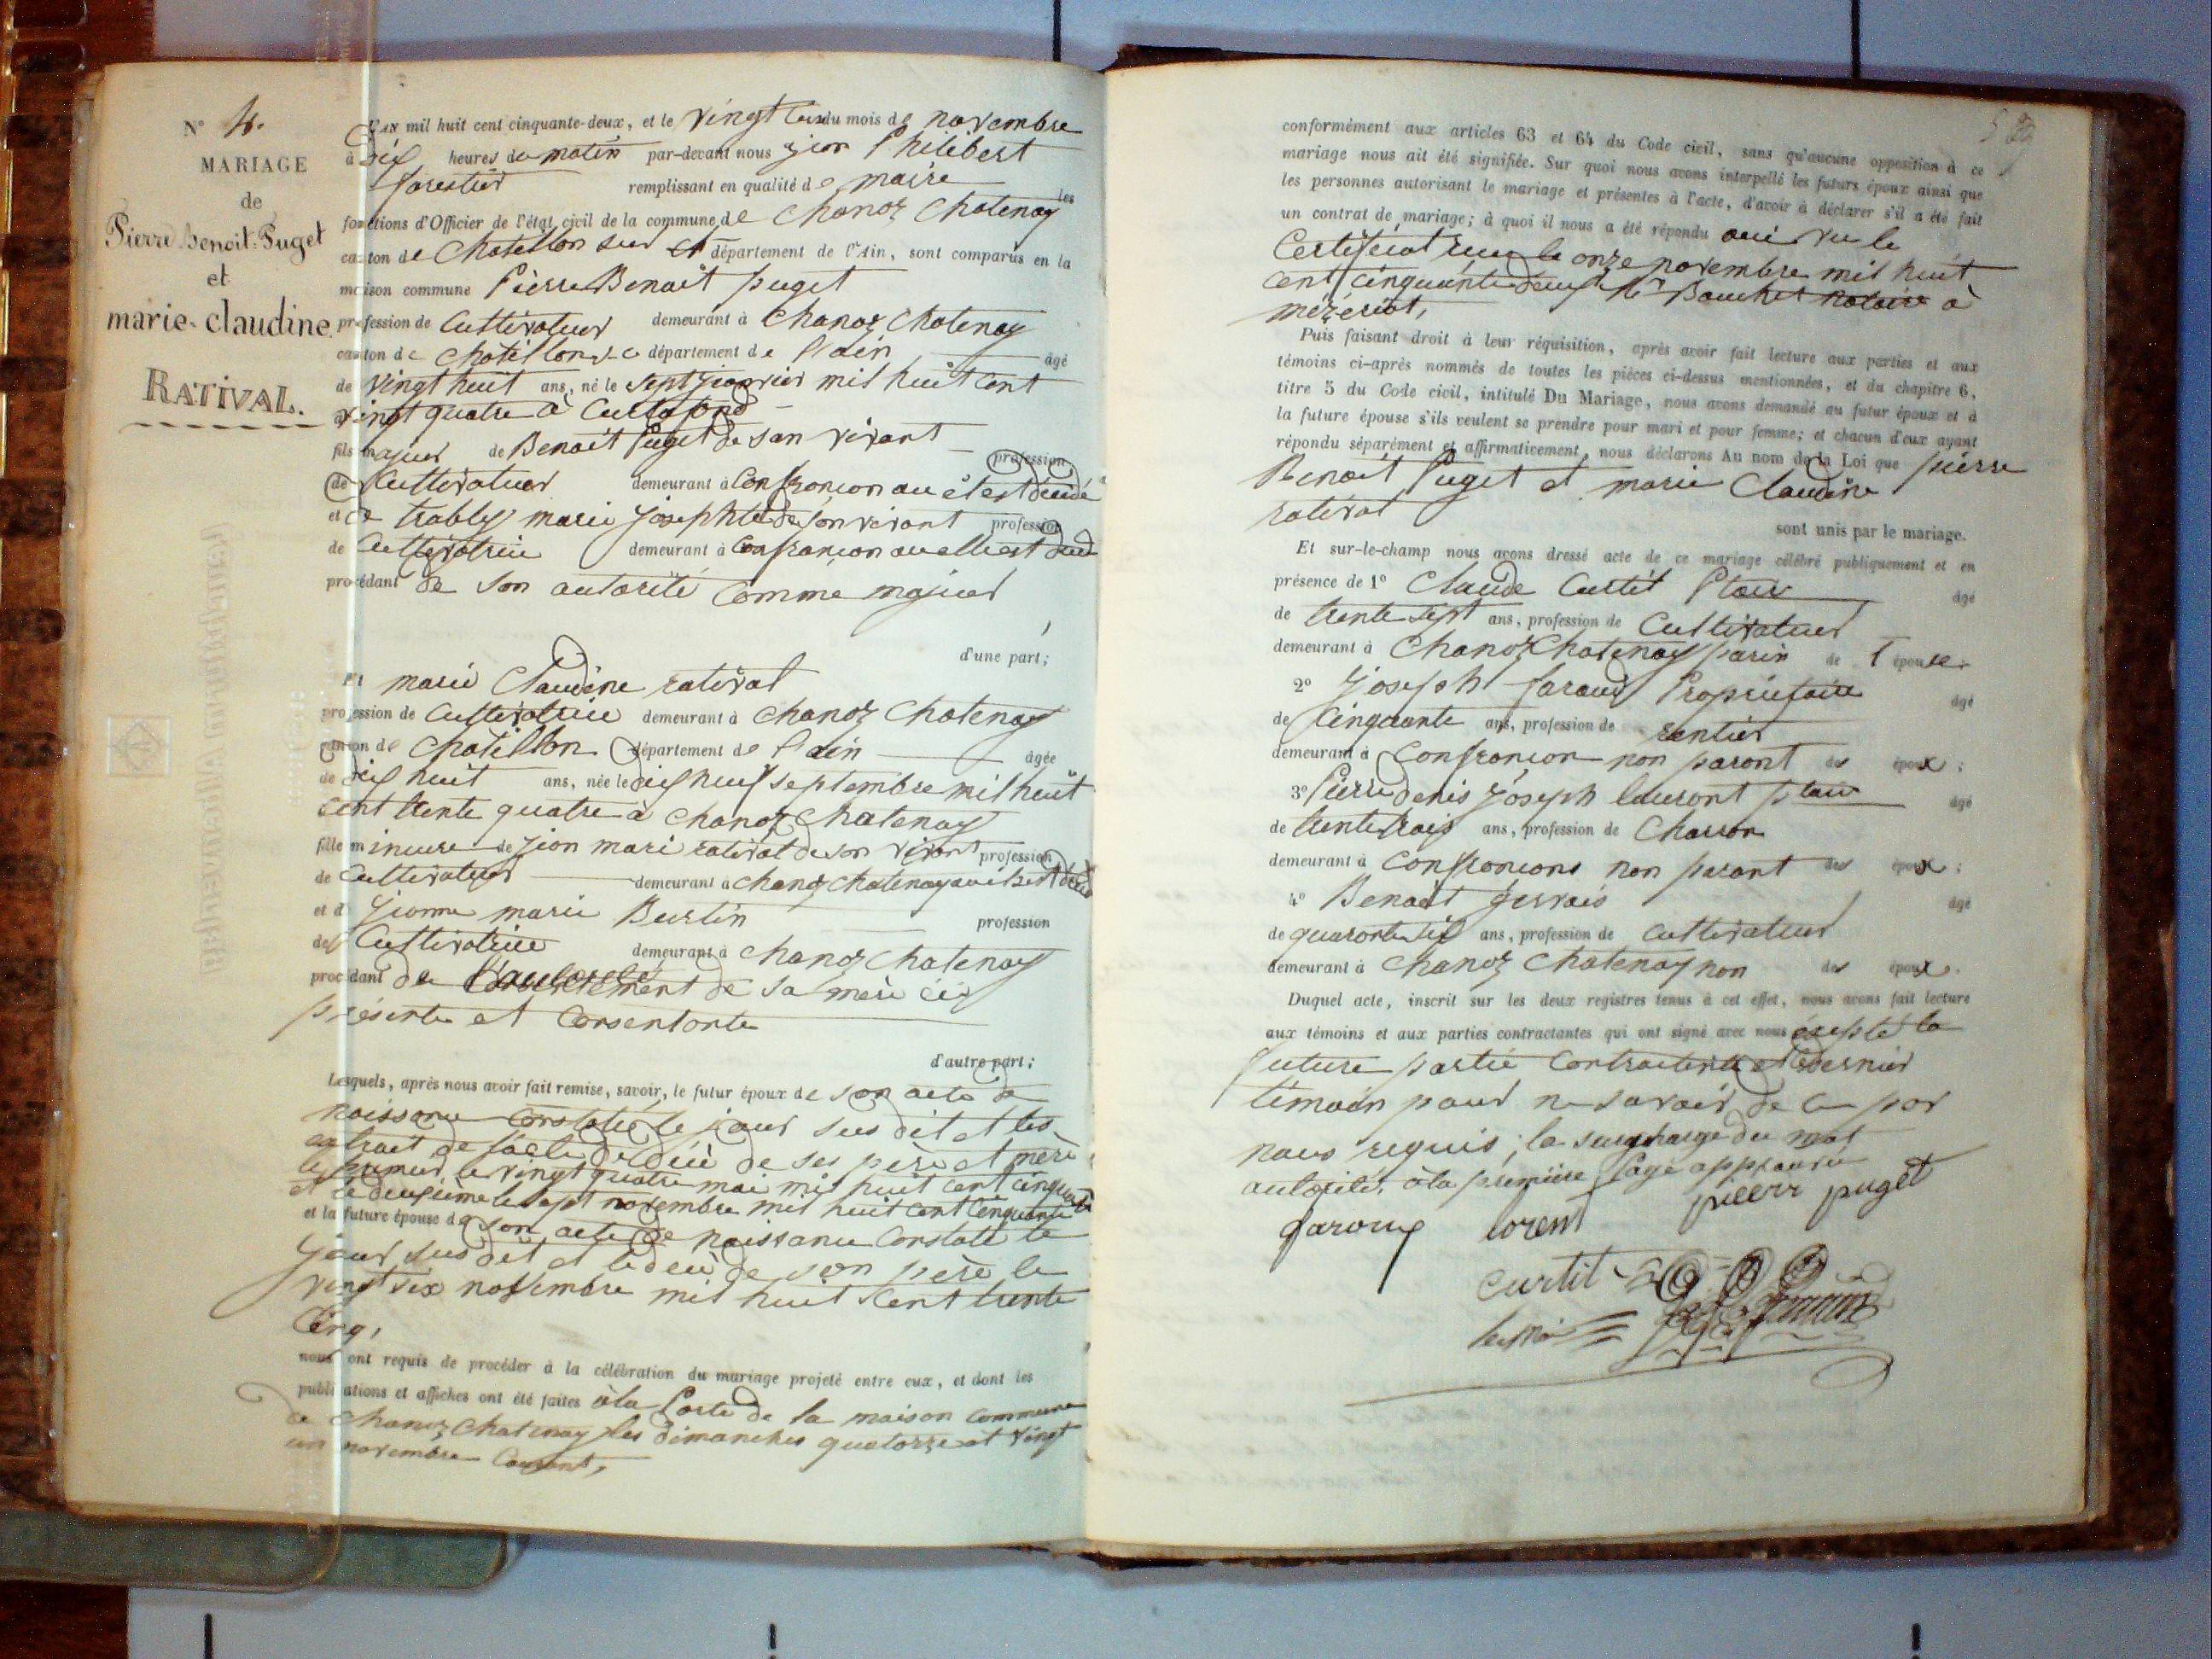 N° 4.
MARIAGE
de
Pierre Benoit Puget
et
marie-claudine
RATIVAL.
L'AN mil huit cent cinquante-deux, et le vingt trois du mois de novembre
à dix heures du matin par-devant nous jion Philibert
forestier remplissant en qualité de maire les
fonctions d'Officier de l'état civil de la commune de Chanoz Chatenay
canton de Chatillon sur département de l'Ain, sont comparus en la
maison commune Pierre Benoit puget
profession de Cultivateur demeurant à Chanoz Chatenay
canton de Chatillon département de l'ain âgé
de vingt huit ans, né le sept janvier mil huit cent
vingt quatre à Curtafond
fils majeur de Benoit Puget de son vivant profession
de Cultivateur demeurant à Confrançon au il est décidé
et de trably marie josephte de son vivant profession
de Cultivatrice demeurant à Confrançon au elle est
procédant de son autorité Comme majeur
d'une part;
Et marie Claudine rativat
profession de Cultivatrice demeurant à Chanoz Chatenay
canton de Chatillon département de l'ain âgée
de dix huit ans, née le dix neuf septembre mil huit
cent trente quatre à Chanoz Chatenay
fille mineure de jion mari rativat de son vivant profession
de Cultivateur demeurant à Chanoz Chatenay au il est
et de jionne marie Burtin profession
de Cultivatrice demeurant à Chanoz Chatenay
procédant de de sa mère ici
présente et Consentante
d'autre part;
Lesquels, après nous avoir fait remise, savoir, le futur époux de son acte de
naissance Constaté le jour sus dit et les
extrait de l'acte de décè de ses père et mère
le premier le vingt quatre mai mil huit cent cinquante
et le deuxième le sept novembre mil huit cent Cinquante
et la future épouse de son acte de naissance Constaté le
jour sus dit et le decè de son père le
vingt six novembre mil huit cent trente
Cinq,
nous ont requis de procéder à la célébration du mariage projeté entre eux, et dont les
publications et affiches ont été faites à la Porte de la maison Commune
de Chanoz Chatenay les dimanches quatorze et vingt
un novembre Courant,
conformément aux articles 63 et 64 du Code civil, sans qu'aucune opposition à ce
mariage nous ait été signifiée. Sur quoi nous avons interpellé les futurs époux ainsi que
les personnes autorisant le mariage et présentes à l'acte, d'avoir à déclarer s'il a été fait
un contrat de mariage; à quoi il nous a été répondu oui vu le
Certificat le onze novembre mil huit
cent cinquante deux Me Bouchet notaire à
mézériat,
Puis faisant droit à leur réquisition, après avoir fait lecture aux parties et aux
témoins ci-après nommés de toutes les pièces ci-dessus mentionnées, et du chapitre 6,
titre 5 du Code civil, intitulé Du Mariage, nous avons demandé au futur époux et à
la future épouse s'ils veulent se prendre pour mari et pour femme; et chacun d'eux ayant
répondu séparément et affirmativement, nous déclarons Au nom de la Loi que pierre
Benoit Puget et marie Claudine
rativat
sont unis par le mariage.
Et sur-le-champ nous avons dressé acte de ce mariage célébré publiquement et en
présence de 1° Claude Curtit âgé
de trente sept ans, profession de Cultivateur
demeurant à Chanoz Chatenay parin de l'épouse
2° Joseph faraud Propriétaire âgé
de Cinquante ans, profession de rentier
demeurant à Confrançon non parant des époux;
3° Pierre denis Joseph lauront âgé
de trente trois ans, profession de Charron
demeurant à Confrancons non parant des époux;
4° Benoit gervais âgé
de quarante six ans, profession de Cultivateur
demeurant à Chanoz Chatenay non des époux.
Duquel acte, inscrit sur les deux registres tenus à cet effet, nous avons fait lecture
aux témoins et aux parties contractantes qui ont signé avec nous éxepté la
future partie Contractente et dernier
témoin pour ne savoir de ce par
nous requis; la surcharge du mot
autorité, à la première page approuvé
pierr puget
lorent
curtit